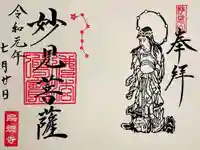 奉拝
妙見菩薩
令和元年
七月廿日